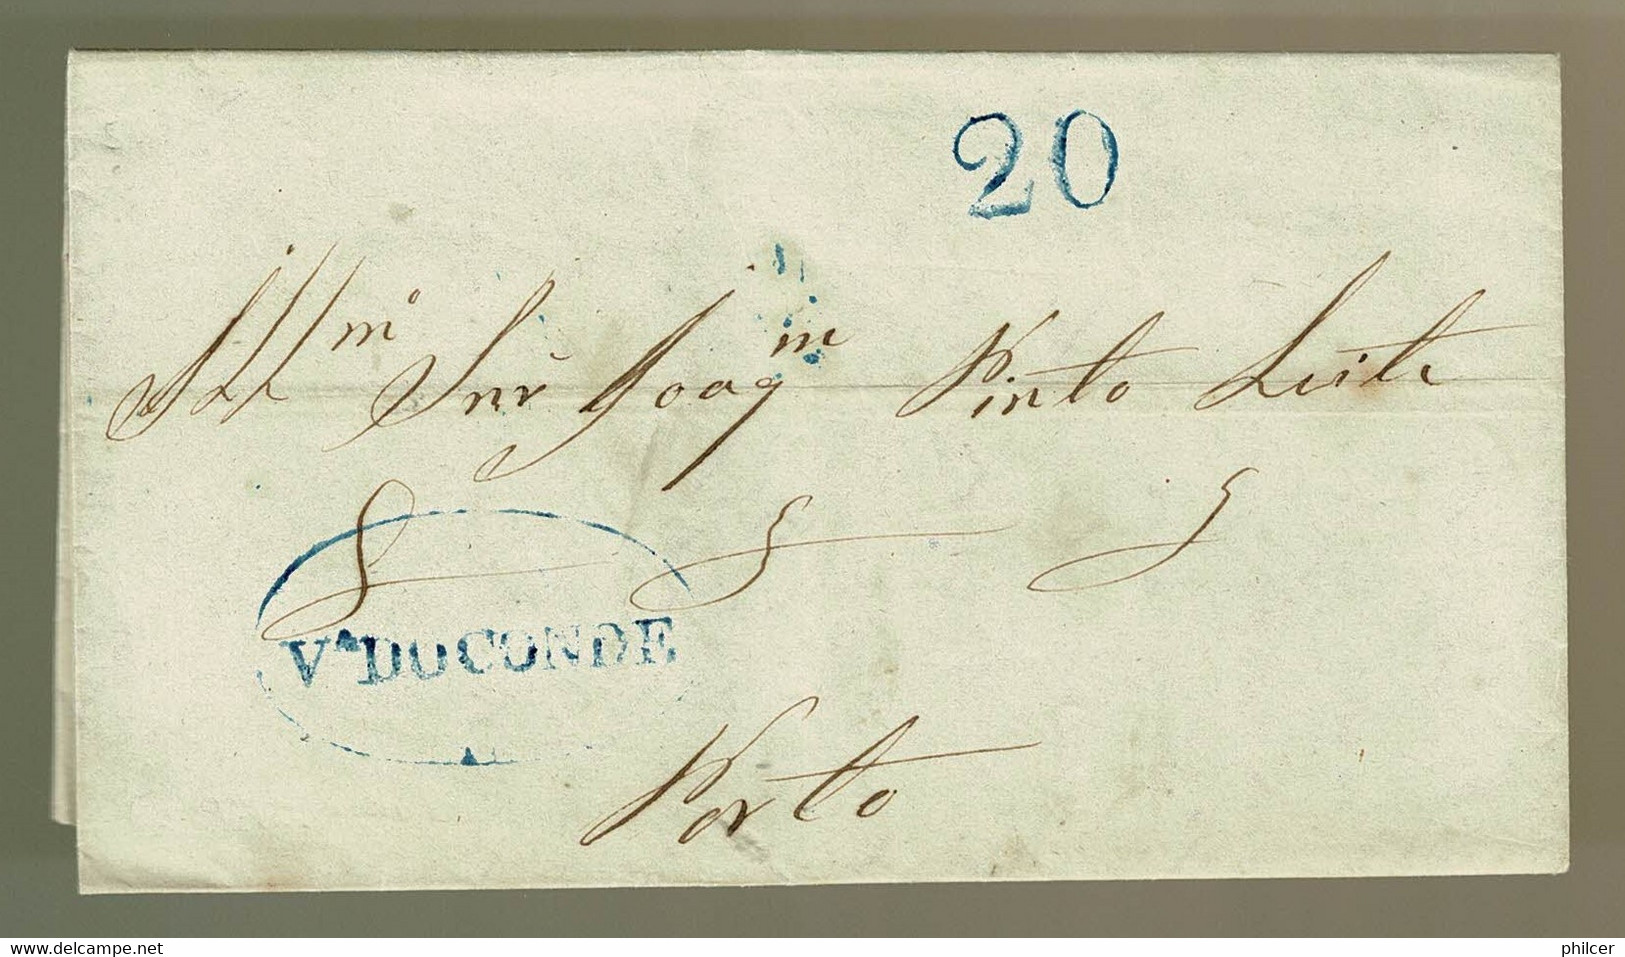 20
Illmº Snr Joaqm Pinto Leite
S S S
Vª DO CONDE
Porto
www.delcampe.net
philcer